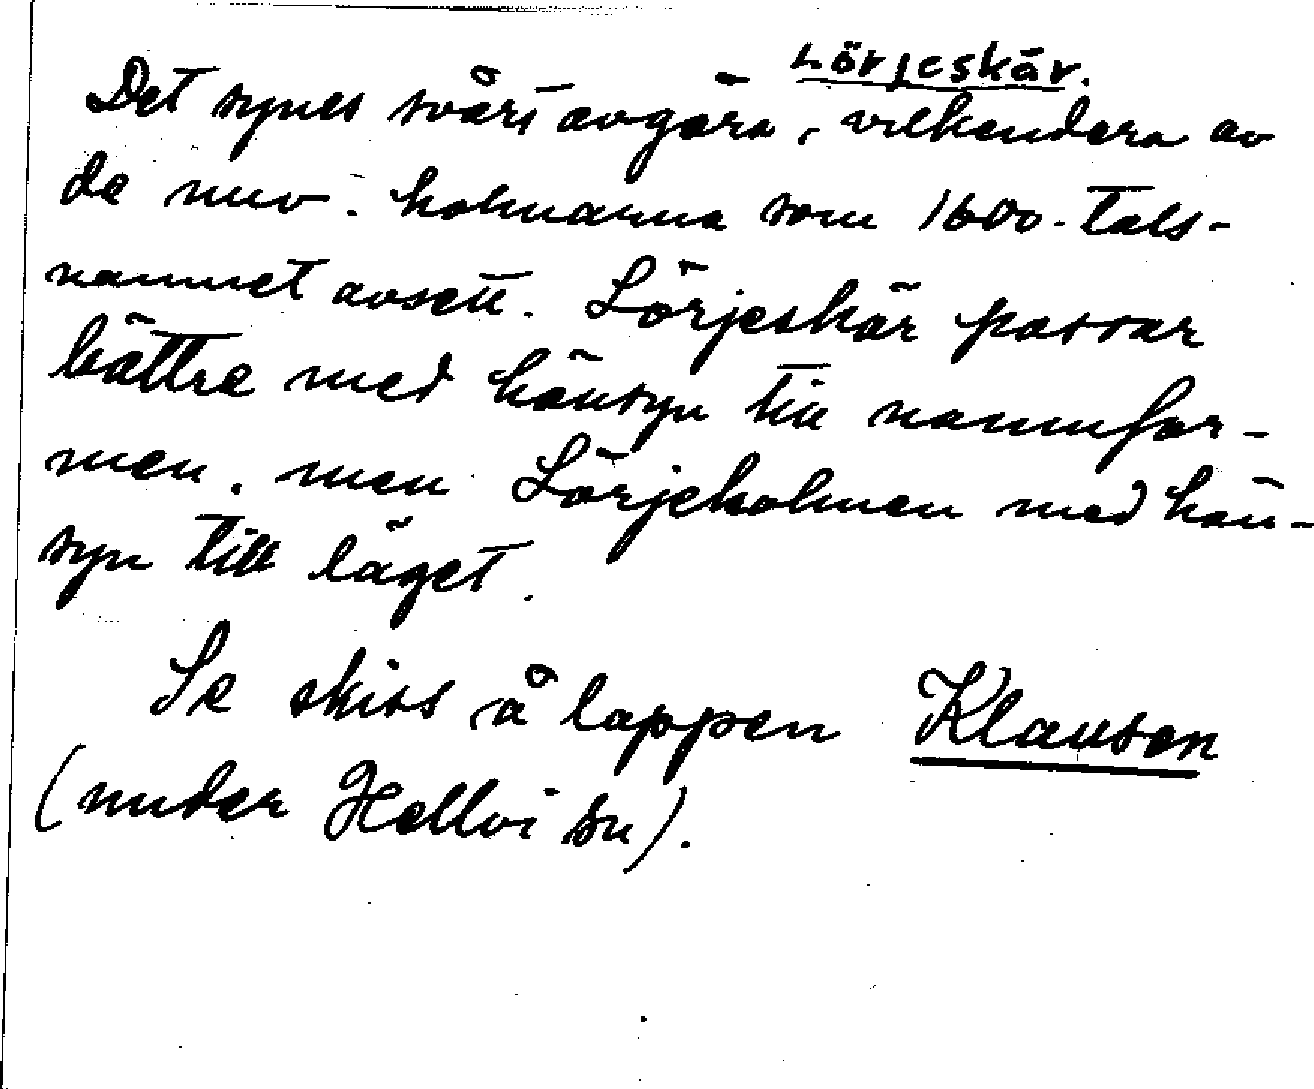 Lörjeskär.
Det synes svårt avgöra, vilkendera av
de nuv. holmarna som 1600-tals-
namnet avsett. Lörjeskär passar
bättre med hänsyn till namnfor-
men, men Lörjeholmen med hän-
syn till läget.
Se skiss å lappen Klausen
(under Hellvi sn).